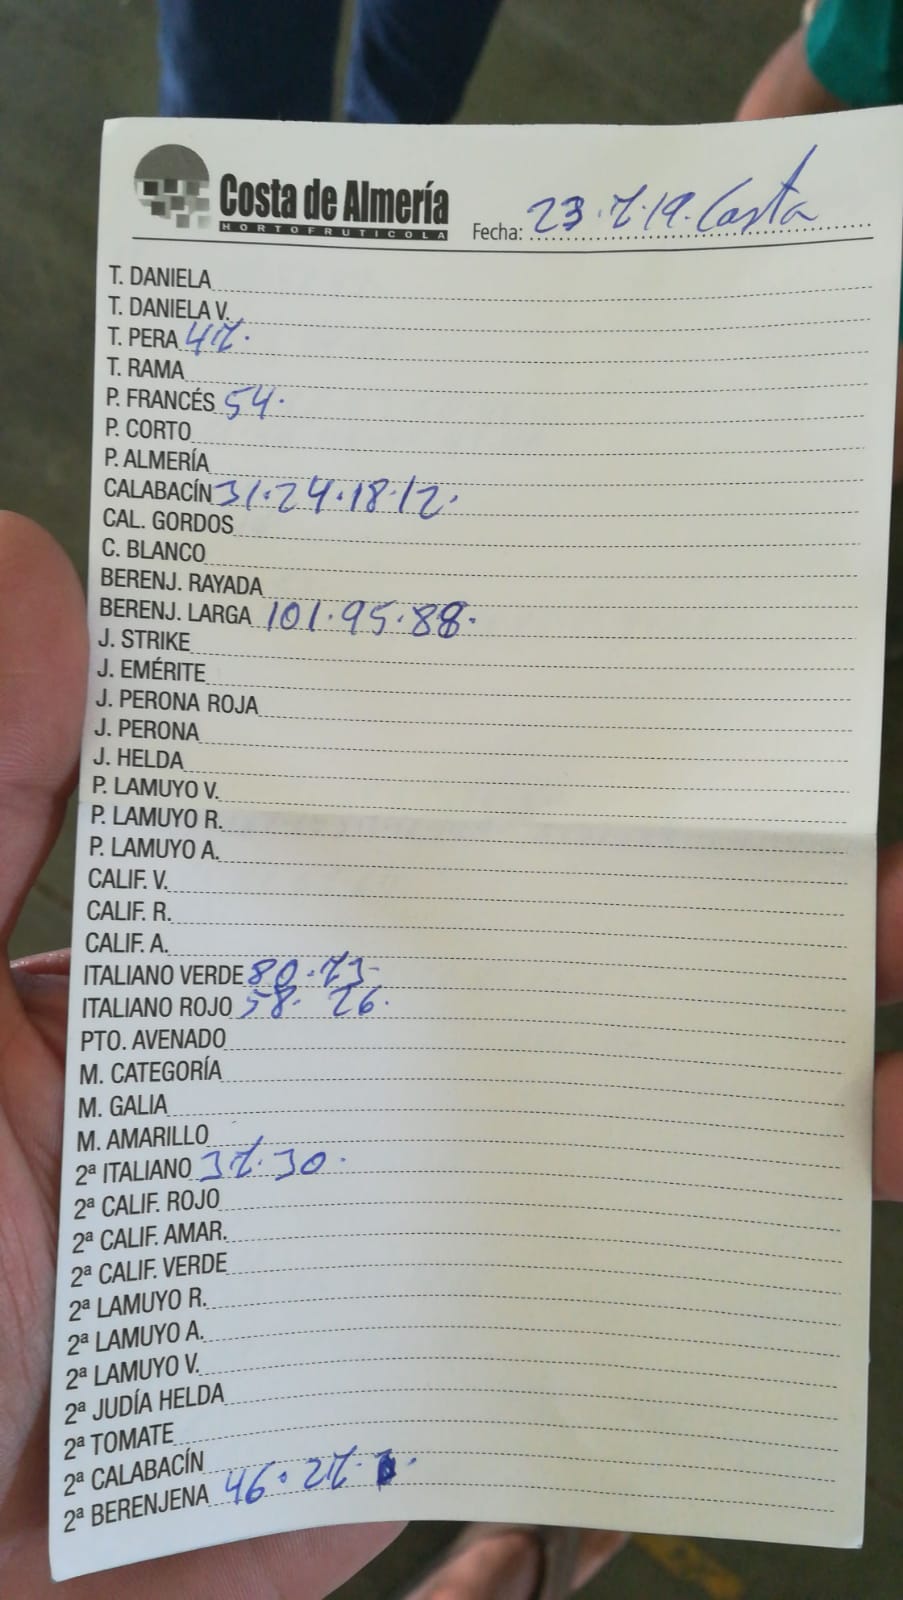 Costa de Almería
HORTOFRUTICOLA
Fecha: 23.7.19. Costa
T. DANIELA
T. DANIELA V.
T. PERA 47.
T. RAMA
P. FRANCÉS 54.
P. CORTO
P. ALMERÍA
CALABACÍN 31.24.18.12.
CAL. GORDOS
C. BLANCO
BERENJ. RAYADA
BERENJ. LARGA 101.95.88.
J. STRIKE
J. EMÉRITE
J. PERONA ROJA
J. PERONA
J. HELDA
P. LAMUYO V.
P. LAMUYO R.
P. LAMUYO A.
CALIF. V.
CALIF. R.
CALIF. A.
ITALIANO VERDE 80.73-
ITALIANO ROJO 58. 26.
PTO. AVENADO
M. CATEGORÍA
M. GALIA
M. AMARILLO
2ª ITALIANO 37.30.
2ª CALIF. ROJO
2ª CALIF. AMAR.
2ª CALIF. VERDE
2ª LAMUYO R.
2ª LAMUYO A.
2ª LAMUYO V.
2ª JUDÍA HELDA
2ª TOMATE
2ª CALABACÍN
2ª BERENJENA 46.27.